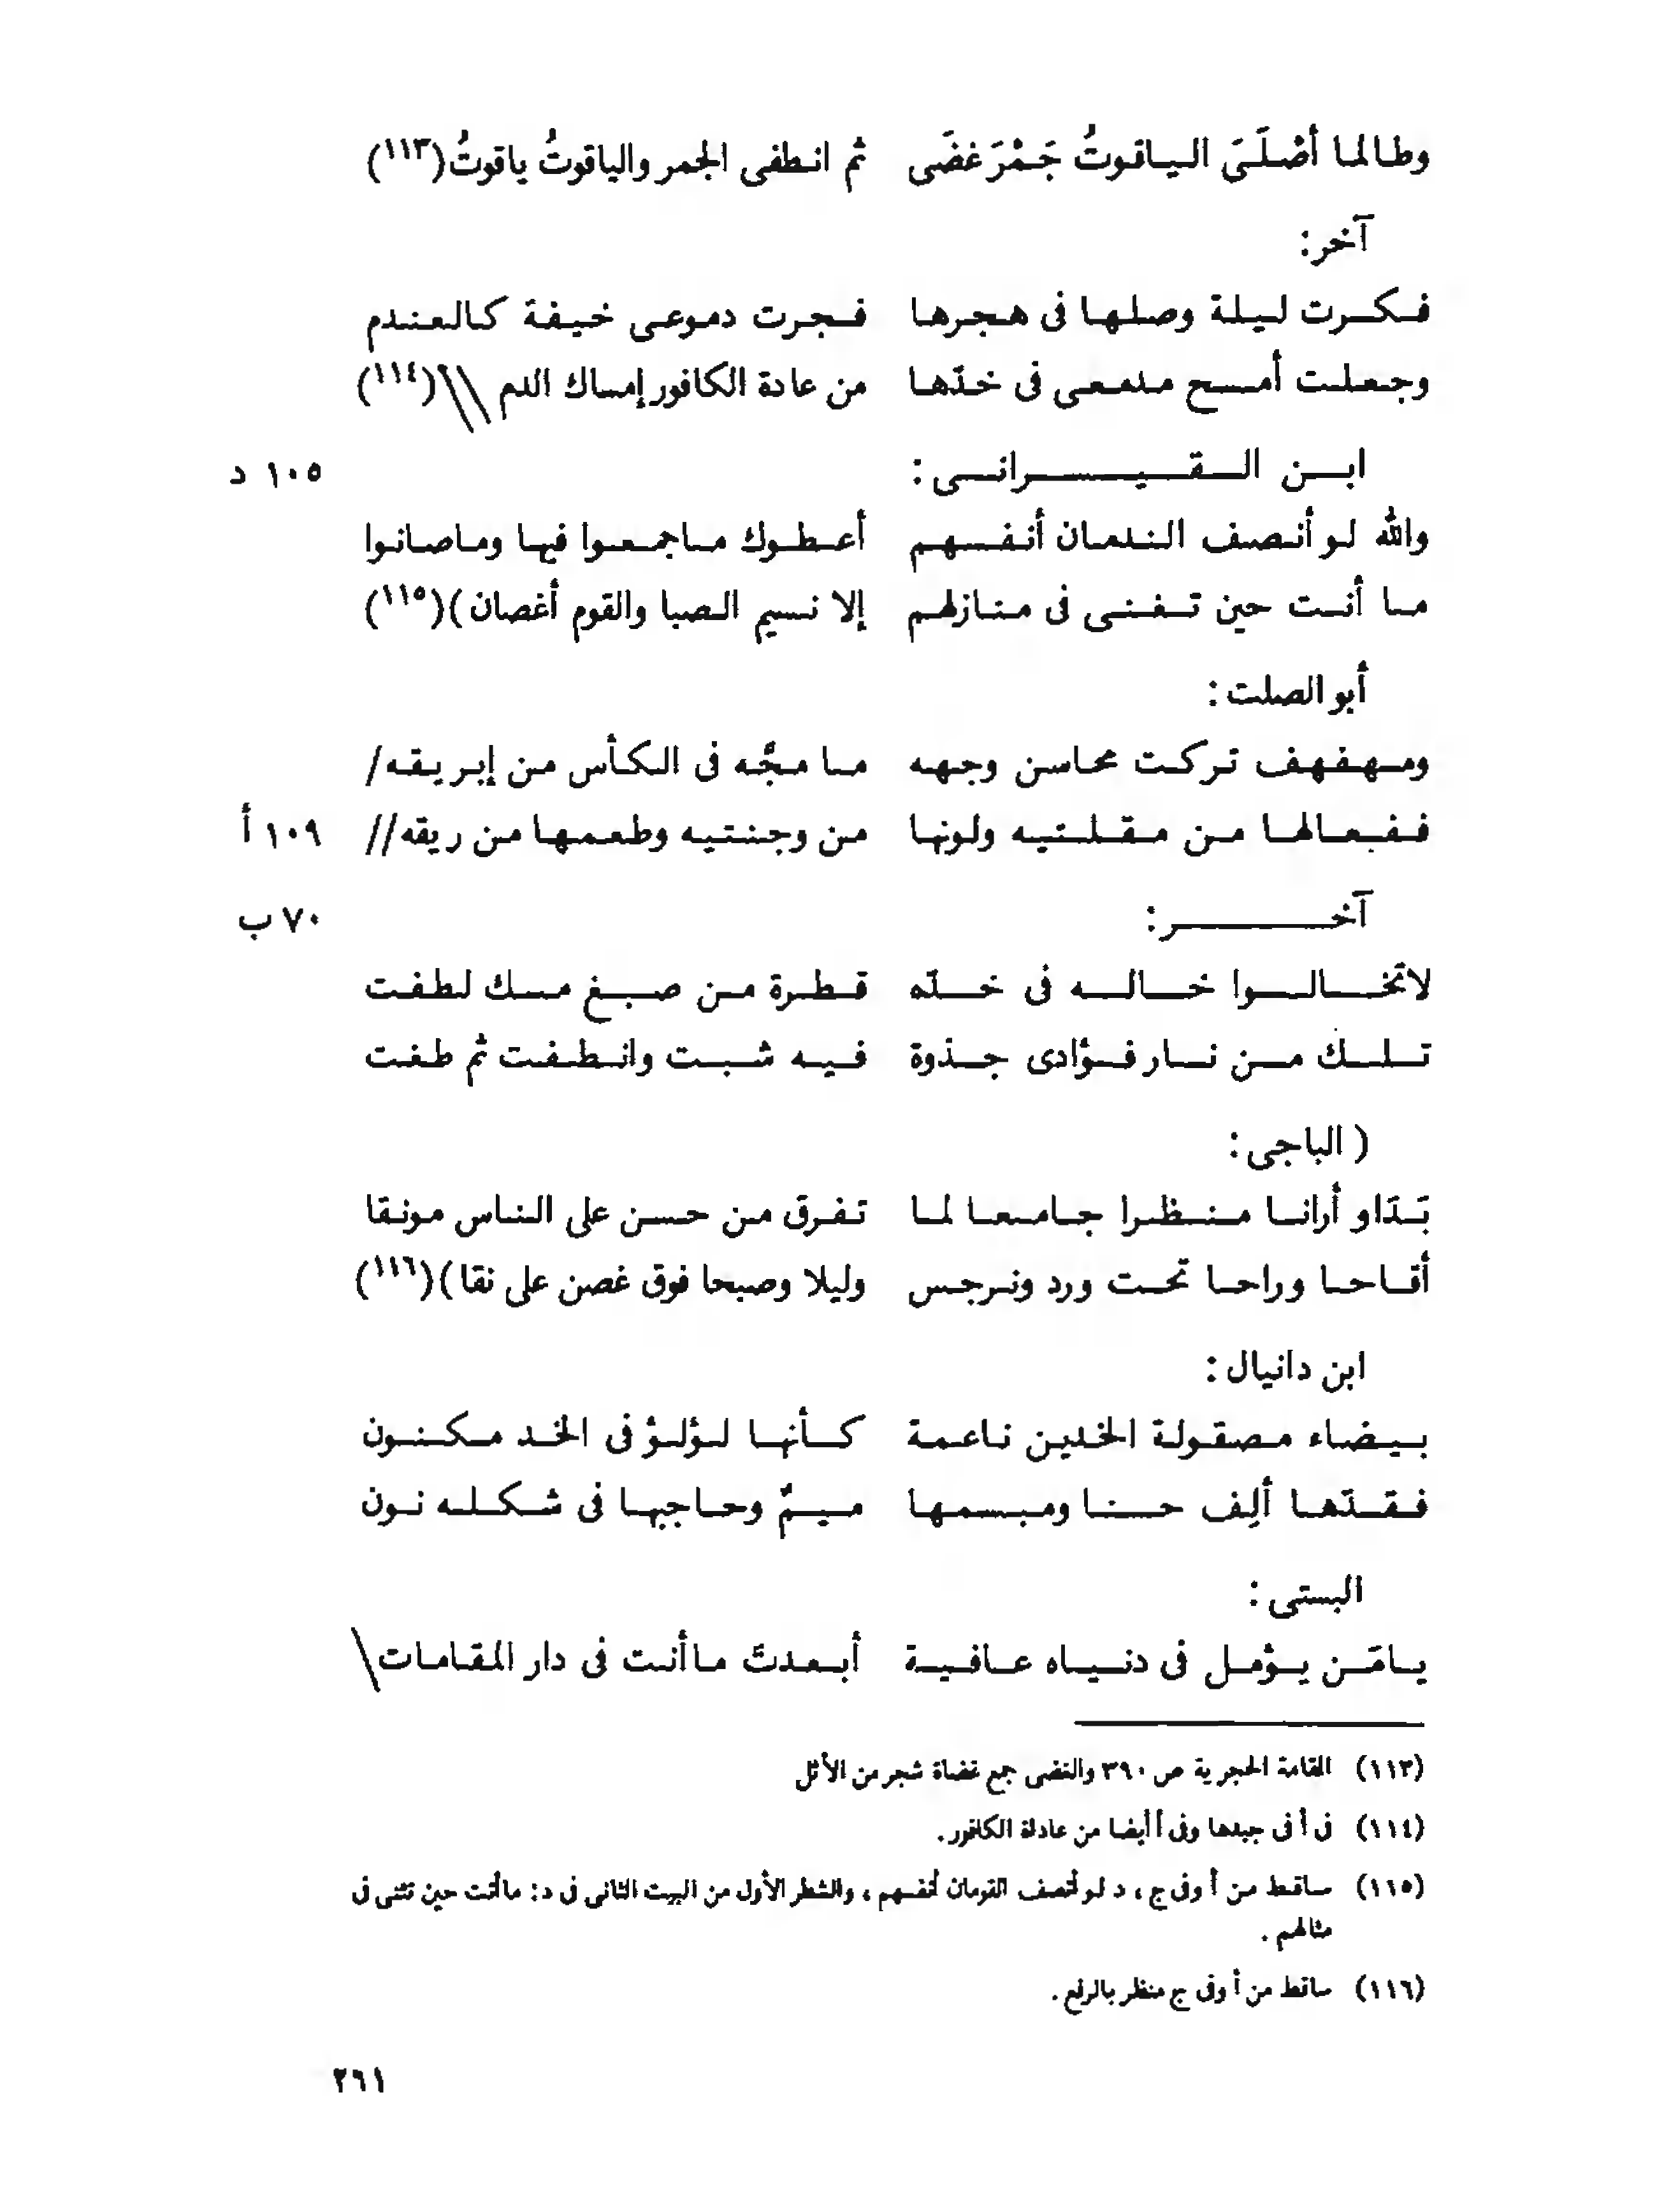 وطالما أصْلَىَ الياقوتُ جَمْرَ غضَى ثم انطفى الجمر والياقوتُ ياقوتُ(١١٣)
آخر:
فكرت ليلة وصلها فى هجرها فجرت دموعى خيفة كالعندم
وجعلت أمسح مدمعى فى خدّها من عادة الكافور إمساك الدم \\(١١٤)
ابن القيسرانى: ١٠٥ د
والله لو أنصف الندمان أنفسهم أعطوك ماجمعوا فيها وماصانوا
ما أنت حين تغنى فى منازلهم إلا نسيم الصبا والقوم أغصان)(١١٥)
أبو الصلت:
ومهفهف تركت محاسن وجهه ما مجَّه فى الكأس من إبريقه/
ففعالها من مقلتيه ولونها من وجنتيه وطعمها من ريقه// ١٠٩ أ
آخر: ٧٠ ب
لاتخالوا خاله فى خدّه قطرة من صبغ مسك لطفت
تلك من نار فؤادى جذوة فيه شبت وانطفت ثم طفت
( الباجى:
بَدَاو أرانا منظرا جامعا لما تفرق من حسن على الناس مونقا
أقاحا وراحا تحت ورد ونرجس وليلا وصبحا فوق غصن على نقا)(١١٦)
ابن دانيال:
بيضاء مصقولة الخدين ناعمة كأنها لؤلؤ فى الخد مكنون
فقدّها ألِف حسنا ومبسمها ميمٌ وحاجبها فى شكله نون
البستى:
يامَن يؤمل فى دنياه عافية أبعدتَ ماأنت فى دار المقامات\
(١١٣) المقامة الحجرية ص ٣٩٠ والغضى جمع غضاة شجر من الأثل
(١١٤) فى أ فى جيدها وفى أ أيضا من عادلة الكافور.
(١١٥) ساقط من أ وفى ج، د لو أنصف القومان أنفسهم، والشطر الأول من البيت الثانى فى د: ماأنت حين تثنى فى
مثالهم.
(١١٦) ساقط من أ وفى ج منظر بالرفع.
٢٦١